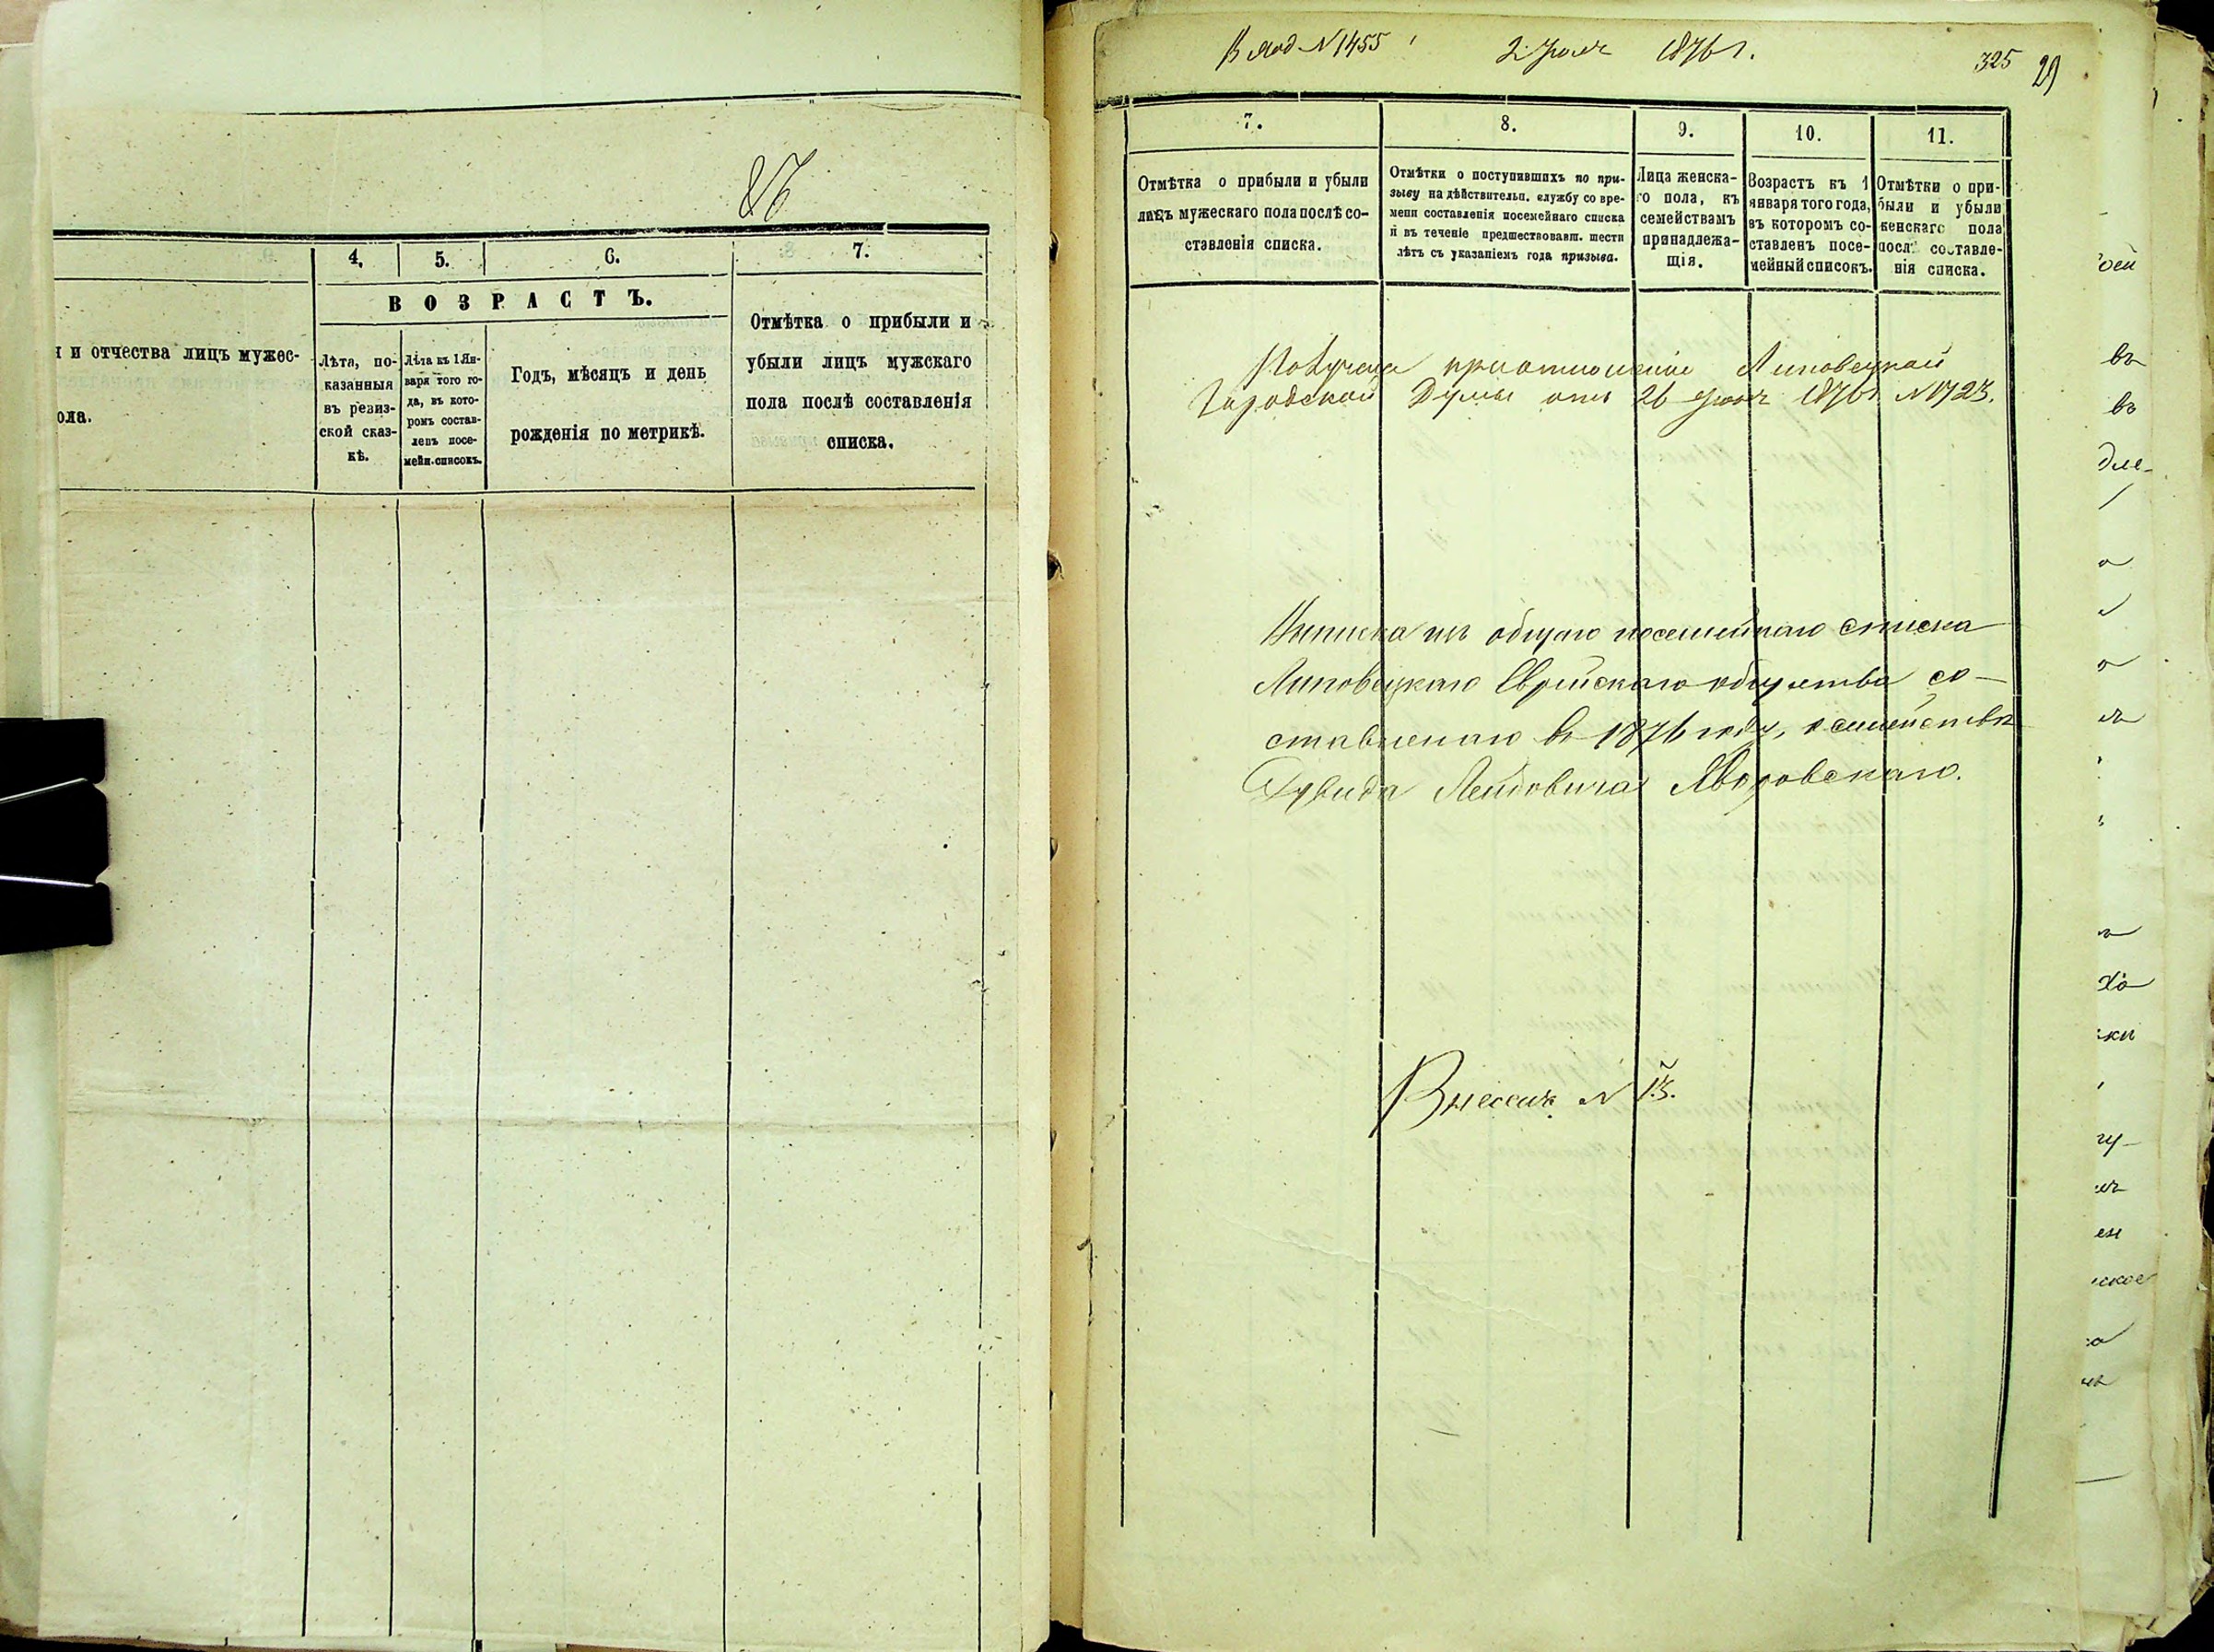 4. 5. 6. 7.
ВОЗРАСТЪ.
и отчества лицъ мужес-
ола.
Лѣта, по-
казанныя
въ ревиз-
ской сказ-
кѣ.
Лѣта къ 1 Ян-
варя того го-
да, въ кото-
ромъ состав-
ленъ посе-
мейн. списокъ.
Годъ, мѣсяцъ и день
рожденія по метрикѣ.
Отмѣтка о прибыли и
убыли лицъ мужскаго
пола послѣ составленія
списка.
Вход № 1455 2 Іюля 1876 г. 325 29
7. 8. 9. 10. 11.
Отмѣтка о прибыли и убыли
лицъ мужескаго пола послѣ со-
ставленія списка.
Отмѣтки о поступившихъ по при-
зыву на дѣйствительн. службу со вре-
мени составленія посемейнаго списка
и въ теченіе предшествовавш. шести
лѣтъ съ указаніемъ года призыва.
Лица женска-
го пола, къ
семействамъ
принадлежа-
щія.
Возрастъ къ 1
января того года,
въ которомъ со-
ставленъ посе-
мейный списокъ.
Отмѣтки о при-
были и убыли
женскаго пола
послѣ составле-
нія списка.
Получена при отношеніи Липовецкой
Городской Думы отъ 26 Іюня 1876 г. № 1723.
Выписка изъ общаго посемейнаго списка
Липовецкаго Еврейскаго общества со-
ставленаго въ 1876 году, о семействѣ
Лейбовича Яворовскаго.
Внесенъ № 13.